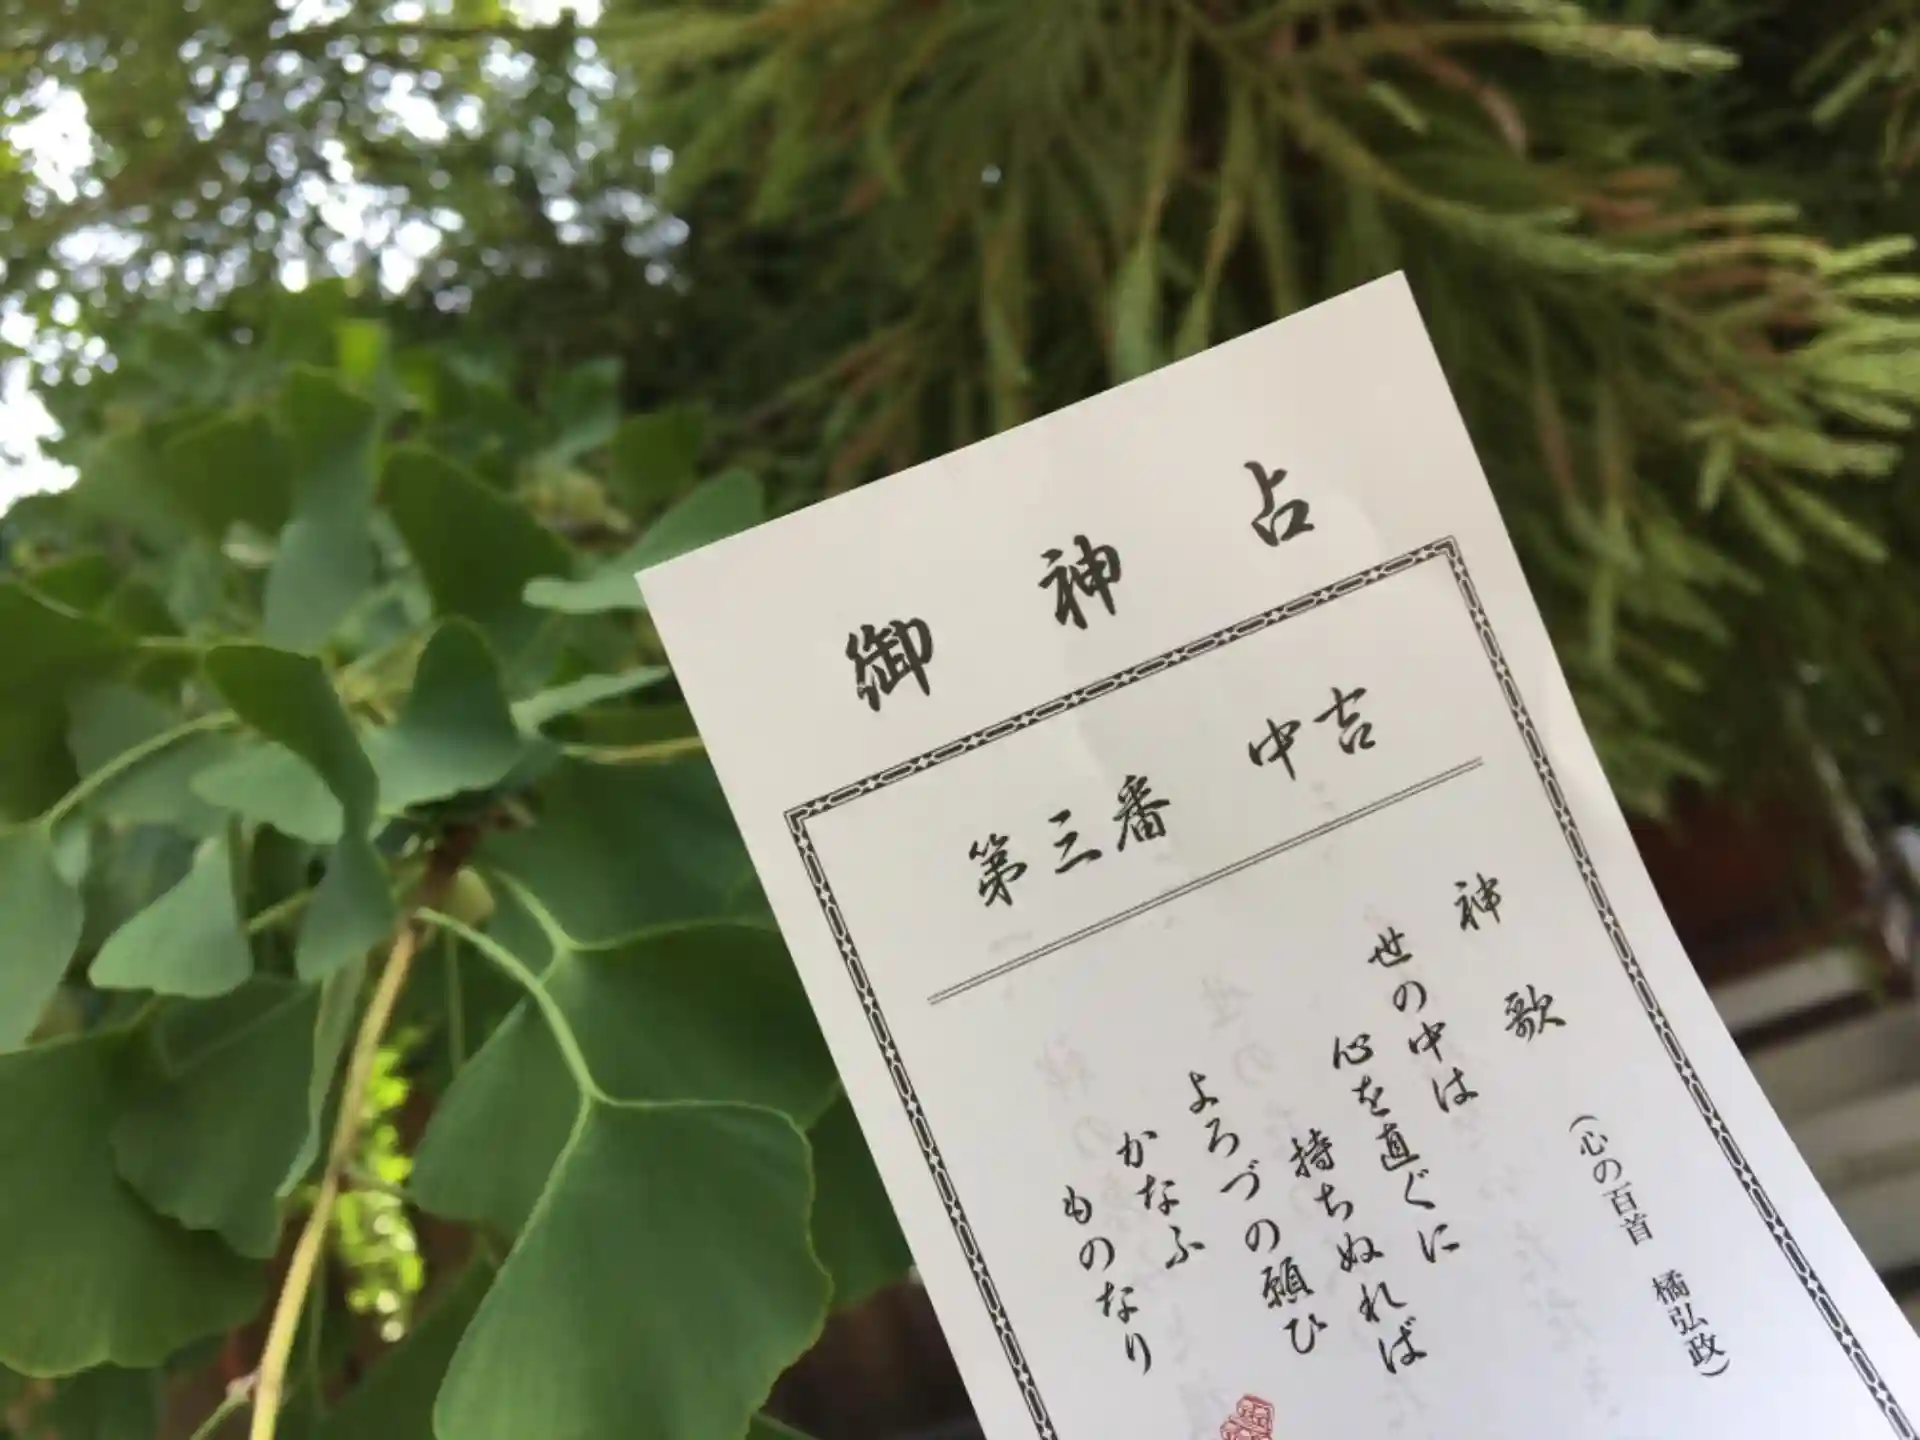 御神占
第三番 中吉
神歌 (心の百首 橘弘政)
世の中は
心を直ぐに
持ちぬれば
よろづの願ひ
かなふ
ものなり